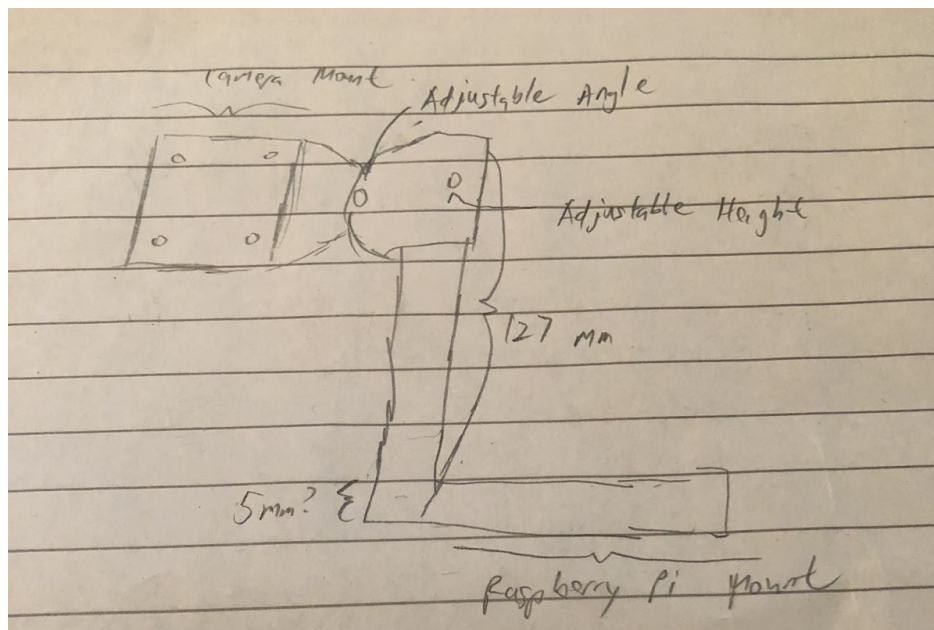 Camera Mount
Adjustable Angle
Adjustable Height
127 mm
5mm?
Raspberry Pi Mount